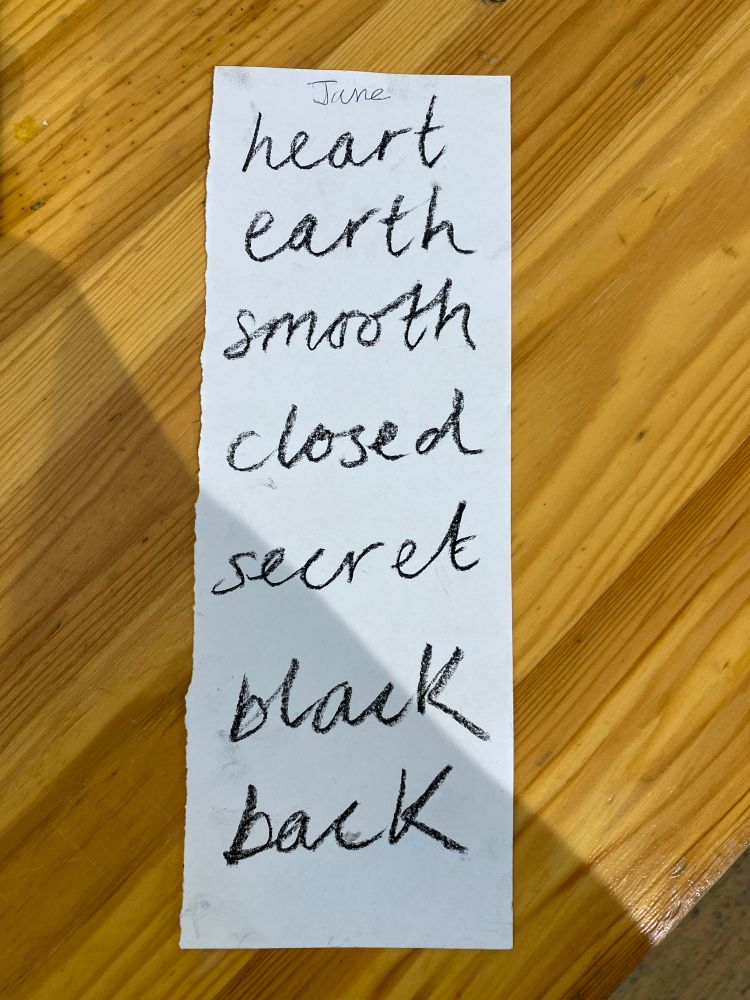 June
heart
earth
smooth
closed
secret
black
back